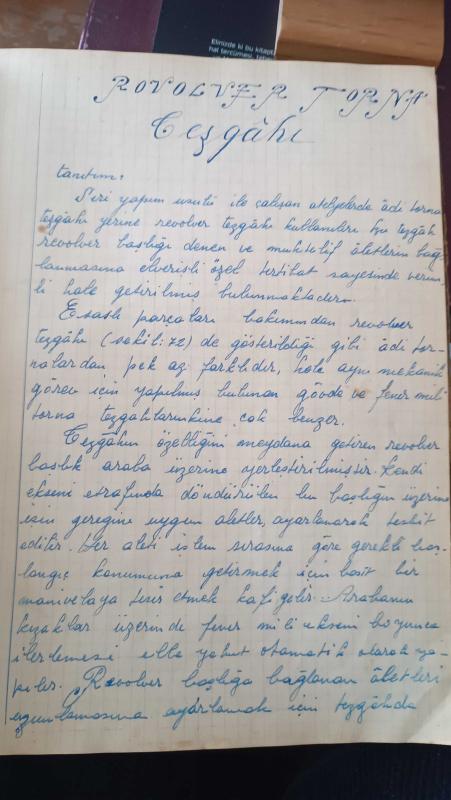 Elinizde ki bu kitapta
hal tercümesi,
ROVOLVER TORNA
Tezgâhı
tanıtım:
Seri yapım usulü ile çalışan atelyelerde âdi torna
tezgâhı yerine revolver tezgâhı kullanılır. Bu tezgâh
revolver başlığı denen ve muhtelif âletlerin bağ-
lanmasına elverişli özel tertibat sayesinde verim-
li hale getirilmiş bulunmaktadır.
Esaslı parçaları bakımından revolver
tezgâhı (sekil: 22) de gösterildiği gibi âdi tor-
nalardan, pek az farklıdır, hele aynı mekanik
görev için yapılmış bulunan gövde ve fener mili
torna tezgahlarınınkine çok benzer.
Tezgâhın özelliğini meydana getiren revolver
başlık araba üzerine yerleştirilmiştir. Kendi
ekseni etrafında döndürülen bu başlığın üzerine
işin gereğine uygun aletler, ayarlanarak tesbit
edilir. Her aleti işlem sırasına göre gerekli baş-
langıç konumuna getirmek için basit bir
manivelaya tesir etmek kafi gelir. Arabanın
kızaklar üzerinde fener mili ekseni boyunca
ilerlemesi elle yahut otamatik olarak ya-
pılır. Revolver başlığa bağlanan âletleri
uzunlamasına ayarlamak için tezgâhda